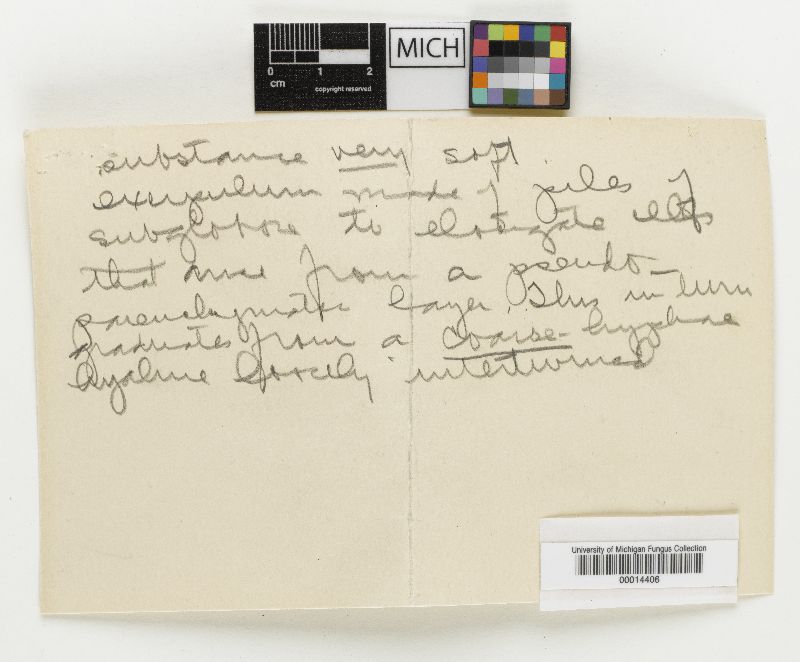 MICH
0 1 2
cm
copyright reserved
substance very soft
excipulum made of piles of
subglobose to elongate cells
that arise from a pseudo-
parenchymatic layer. This in turn
graduates from a coarse-hyphae
hyaline loosely intertwined
University of Michigan Fungus Collection
00014406